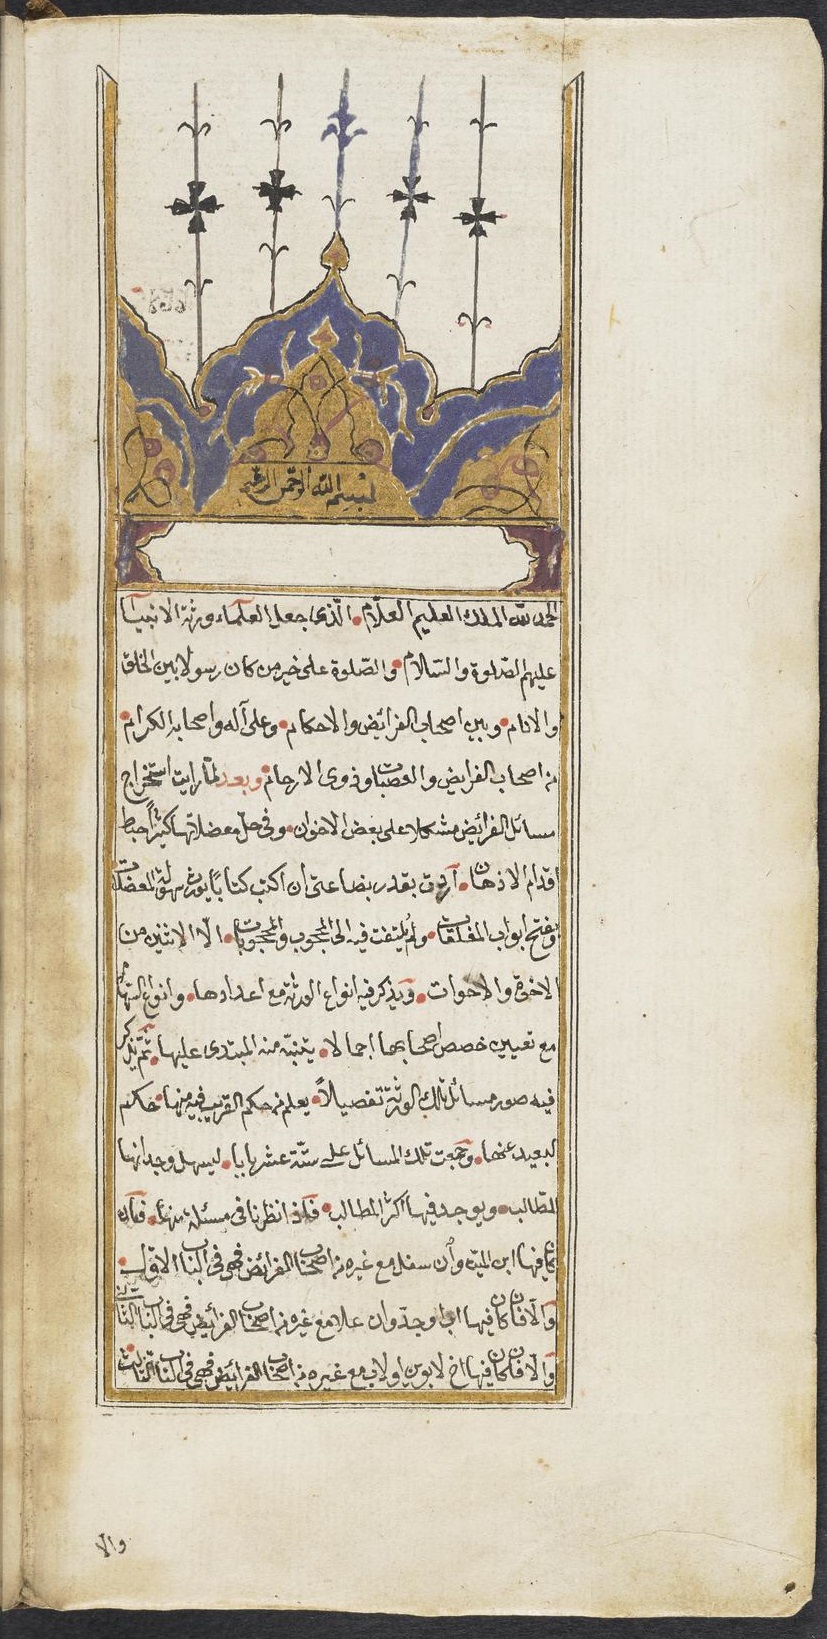 بسم الله الرحمن الرحيم
الحمد لله الملك العليم العلّام الّذى جعل العلماء ورثة الانبيآ
عليهم الصّلوة والسّلام والصّلوة على خير من كان رسولا بين الخلق
والانام وبين اصحاب الفرائض والاحكام وعلى آله واصحابه الكرام
من اصحاب الفرايض والعصبات وذوى الارحام وبعد لمّا رايت استخراج
مسائل الفرائض مشكلا على بعض الاخوان وفى حلّ معضلاتها كثيراً خبط
اقدام الاذهان آردت بقدر بضاعتى ان اكتب كتاباً يورث سهولة المعضلات
وبفتح ابواب المغلقات ولم يلتفت فيه الى المحجوب والمحجوبات الّا الاثنين من
الاخوة والاخوات ويذكر فيه انواع الورثة مع اعدادها وانواع السّهام
مع تعيين حصص اصحابها اجمالا يتنبّه منه المبتدى عليها ثمّ يذكر
فيه صور مسائل تلك الورثة تفصيلاً يعلم من حكم القريب فيه منها حكم
البعيد عنها وجمعت تلك المسائل على ستّة عشر بابا ليسهل وجدانها
للطّالب ويوجد فيها اكثر المطالب فاذا نظرنا فى مسئلة منها فان
كان فيها ابن الميّت وان سفل مع غيره من اصحاب الفرائض فهى فى الباب الاوّل
والّا فان كان فيها اب وجدّ وان علا مع غيره من اصحاب الفرائض فهى فى الباب الثّانى
والّا فان كان فيها اخ لابوين او لاب مع غيره من اصحاب الفرائض فهى فى الباب الثّالث
والا